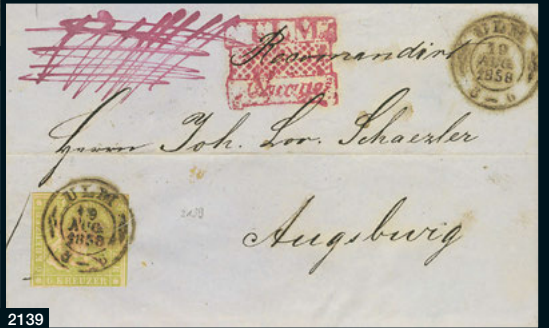 ULM
Chargé
Recomandirt
ULM
19
AUG.
1858
5-6
Herrn Joh. Lor. Schaezler
Augsburg
ULM
19
AUG.
1858
5-6
6 KREUZER
2139